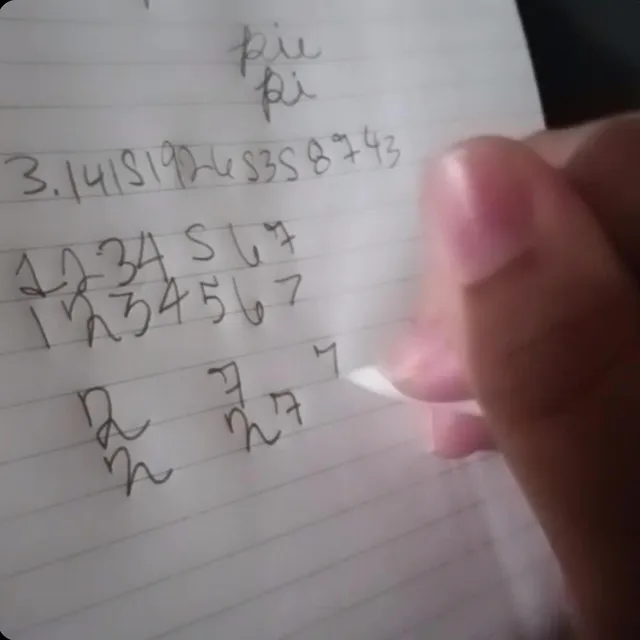 pie
pi
3.14151926535 8743
1234567
1234567
2 7 7
2 27